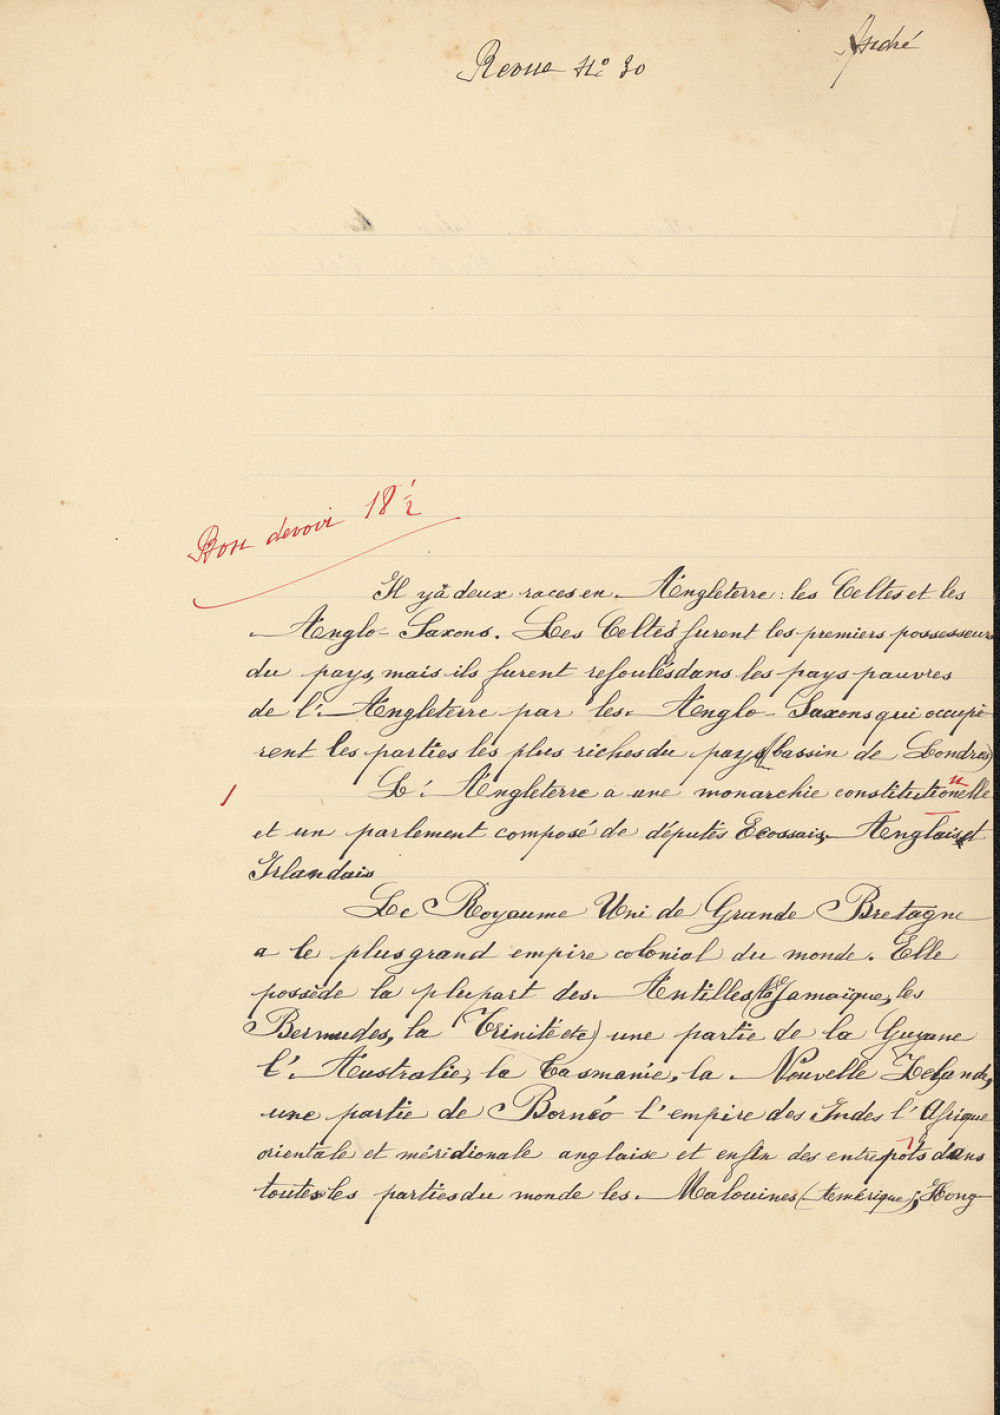 André
Revue N° 30
Bon devoir 18 1/2
Il y a deux races en Angleterre : les Celtes et les
Anglo-Saxons. Les Celtes furent les premiers possesseurs
du pays, mais ils furent refoulés dans les pays pauvres
de l'Angleterre par les Anglo-Saxons qui occupè-
rent les parties les plus riches du pays (bassin de Londres)
1 L'Angleterre a une monarchie constitutionelle n
et un parlement composé de députés Ecossais, Anglais et
Irlandais
Le Royaume Uni de Grande Bretagne
a le plus grand empire colonial du monde. Elle
possède la plupart des Antilles (la Jamaïque, les
Bermudes, la Trinité etc) une partie de la Guyane
l'Australie, la Tasmanie, la Nouvelle Zelande,
une partie de Bornéo l'empire des Indes l'Afrique
orientale et méridionale anglaise et enfin des entrepôts dans
toutes les parties du monde les Malouines (Amérique), Hong-